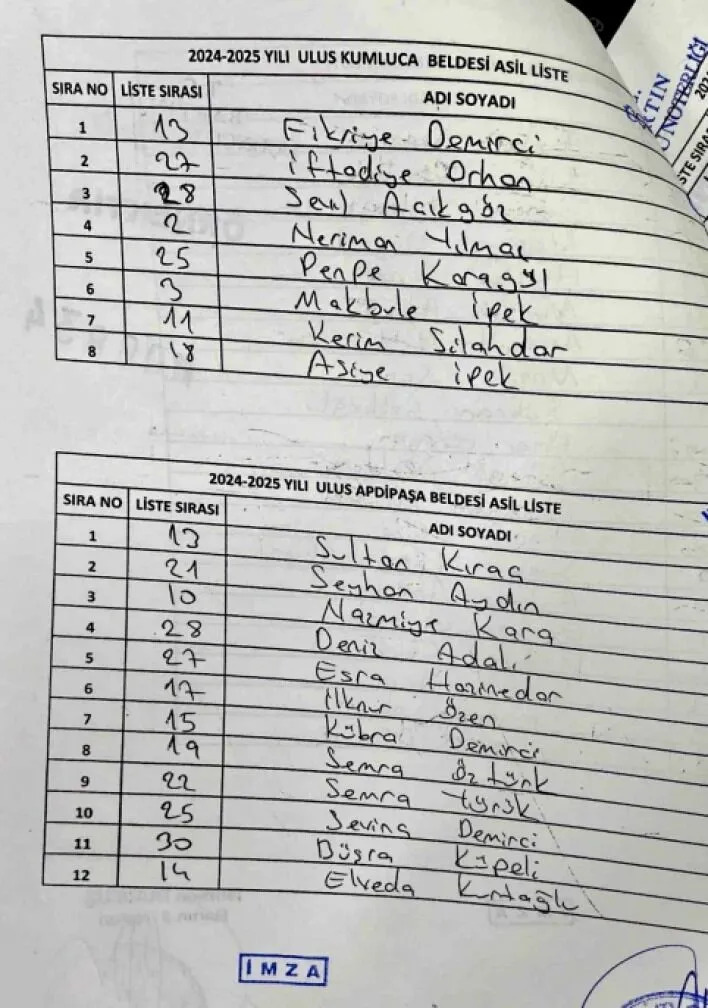 2024-2025 YILI ULUS KUMLUCA BELDESİ ASİL LİSTE
SIRA NO LİSTE SIRASI ADI SOYADI
1 13 Fikriye Demirci
2 27 İftadiye Orhan
3 28 Senl Açıkgöz
4 2 Neriman Yılmaz
5 25 Penpe Karagyl
6 3 Makbule İpek
7 11 Kerim Silahdar
8 18 Asiye İpek
2024-2025 YILI ULUS APDİPAŞA BELDESİ ASİL LİSTE
SIRA NO LİSTE SIRASI ADI SOYADI
1 13 Sultan Kıraç
2 21 Seyhan Aydın
3 10 Nazmiye Kara
4 28 Deniz Adalı
5 27 Esra Hazinedar
6 17 İlknur Özen
7 15 Kübra Demirci
8 19 Semra Öztürk
9 22 Semra
10 25 Sevinç Demirci
11 30 Büşra Küpeli
12 14 Elveda
İMZA
NOTERLİĞİ